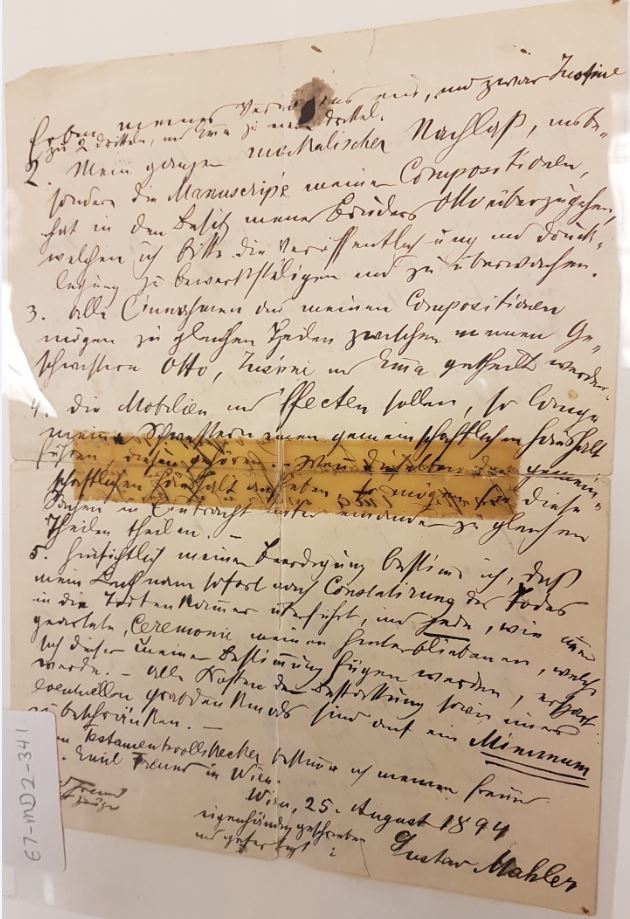 Erben meines Vermögens ein, und zwar Justine
zu 2 Dritteln, und Emma zu einem Drittel.
2. Mein ganzer musikalischer Nachlaß, insbe-
sondere die Manuscripte meiner Compositionen,
hat in den Besitz meines Bruders Otto überzugehen,
welchen ich bitte die Veröffentlichung und Druck-
legung zu bewerkstelligen und zu überwachen.
3. Alle Einnahmen aus meinen Compositionen
mögen zu gleichen Theilen zwischen meinen Ge-
schwistern Otto, Justine und Emma getheilt werden.
4. Die Mobilien und Effecten sollen, so lange
meine Schwestern einen gemeinschaftlichen Haushalt
führen, diesen gehören. – Wenn dieselben den gemein-
schaftlichen Haushalt aufgeben, so mögen sie diese
Sachen in Eintracht unter einander zu gleichen
Theilen theilen. –
5. Hinsichtlich meiner Beerdigung bestimme ich, daß
mein Leichnam sofort nach Constatirung des Todes
in die Todtenkammer überführt, und jede, wie immer
geartete, Ceremonie meinen Hinterbliebenen, welche
sich dieser meiner Bestimmung fügen werden, erspart
werde. – Alle Kosten der Bestattung sowie eines
eventuellen Grabdenkmals sind auf ein Minimum
zu beschränken. –
Testamentsvollstrecker bestimme ich meinen Freund
Emil Freund in Wien.
Wien, 25. August 1894
eigenhändig geschrieben
und gefertigt:
Gustav Mahler
Freund
Zeuge
E7-MD2-341